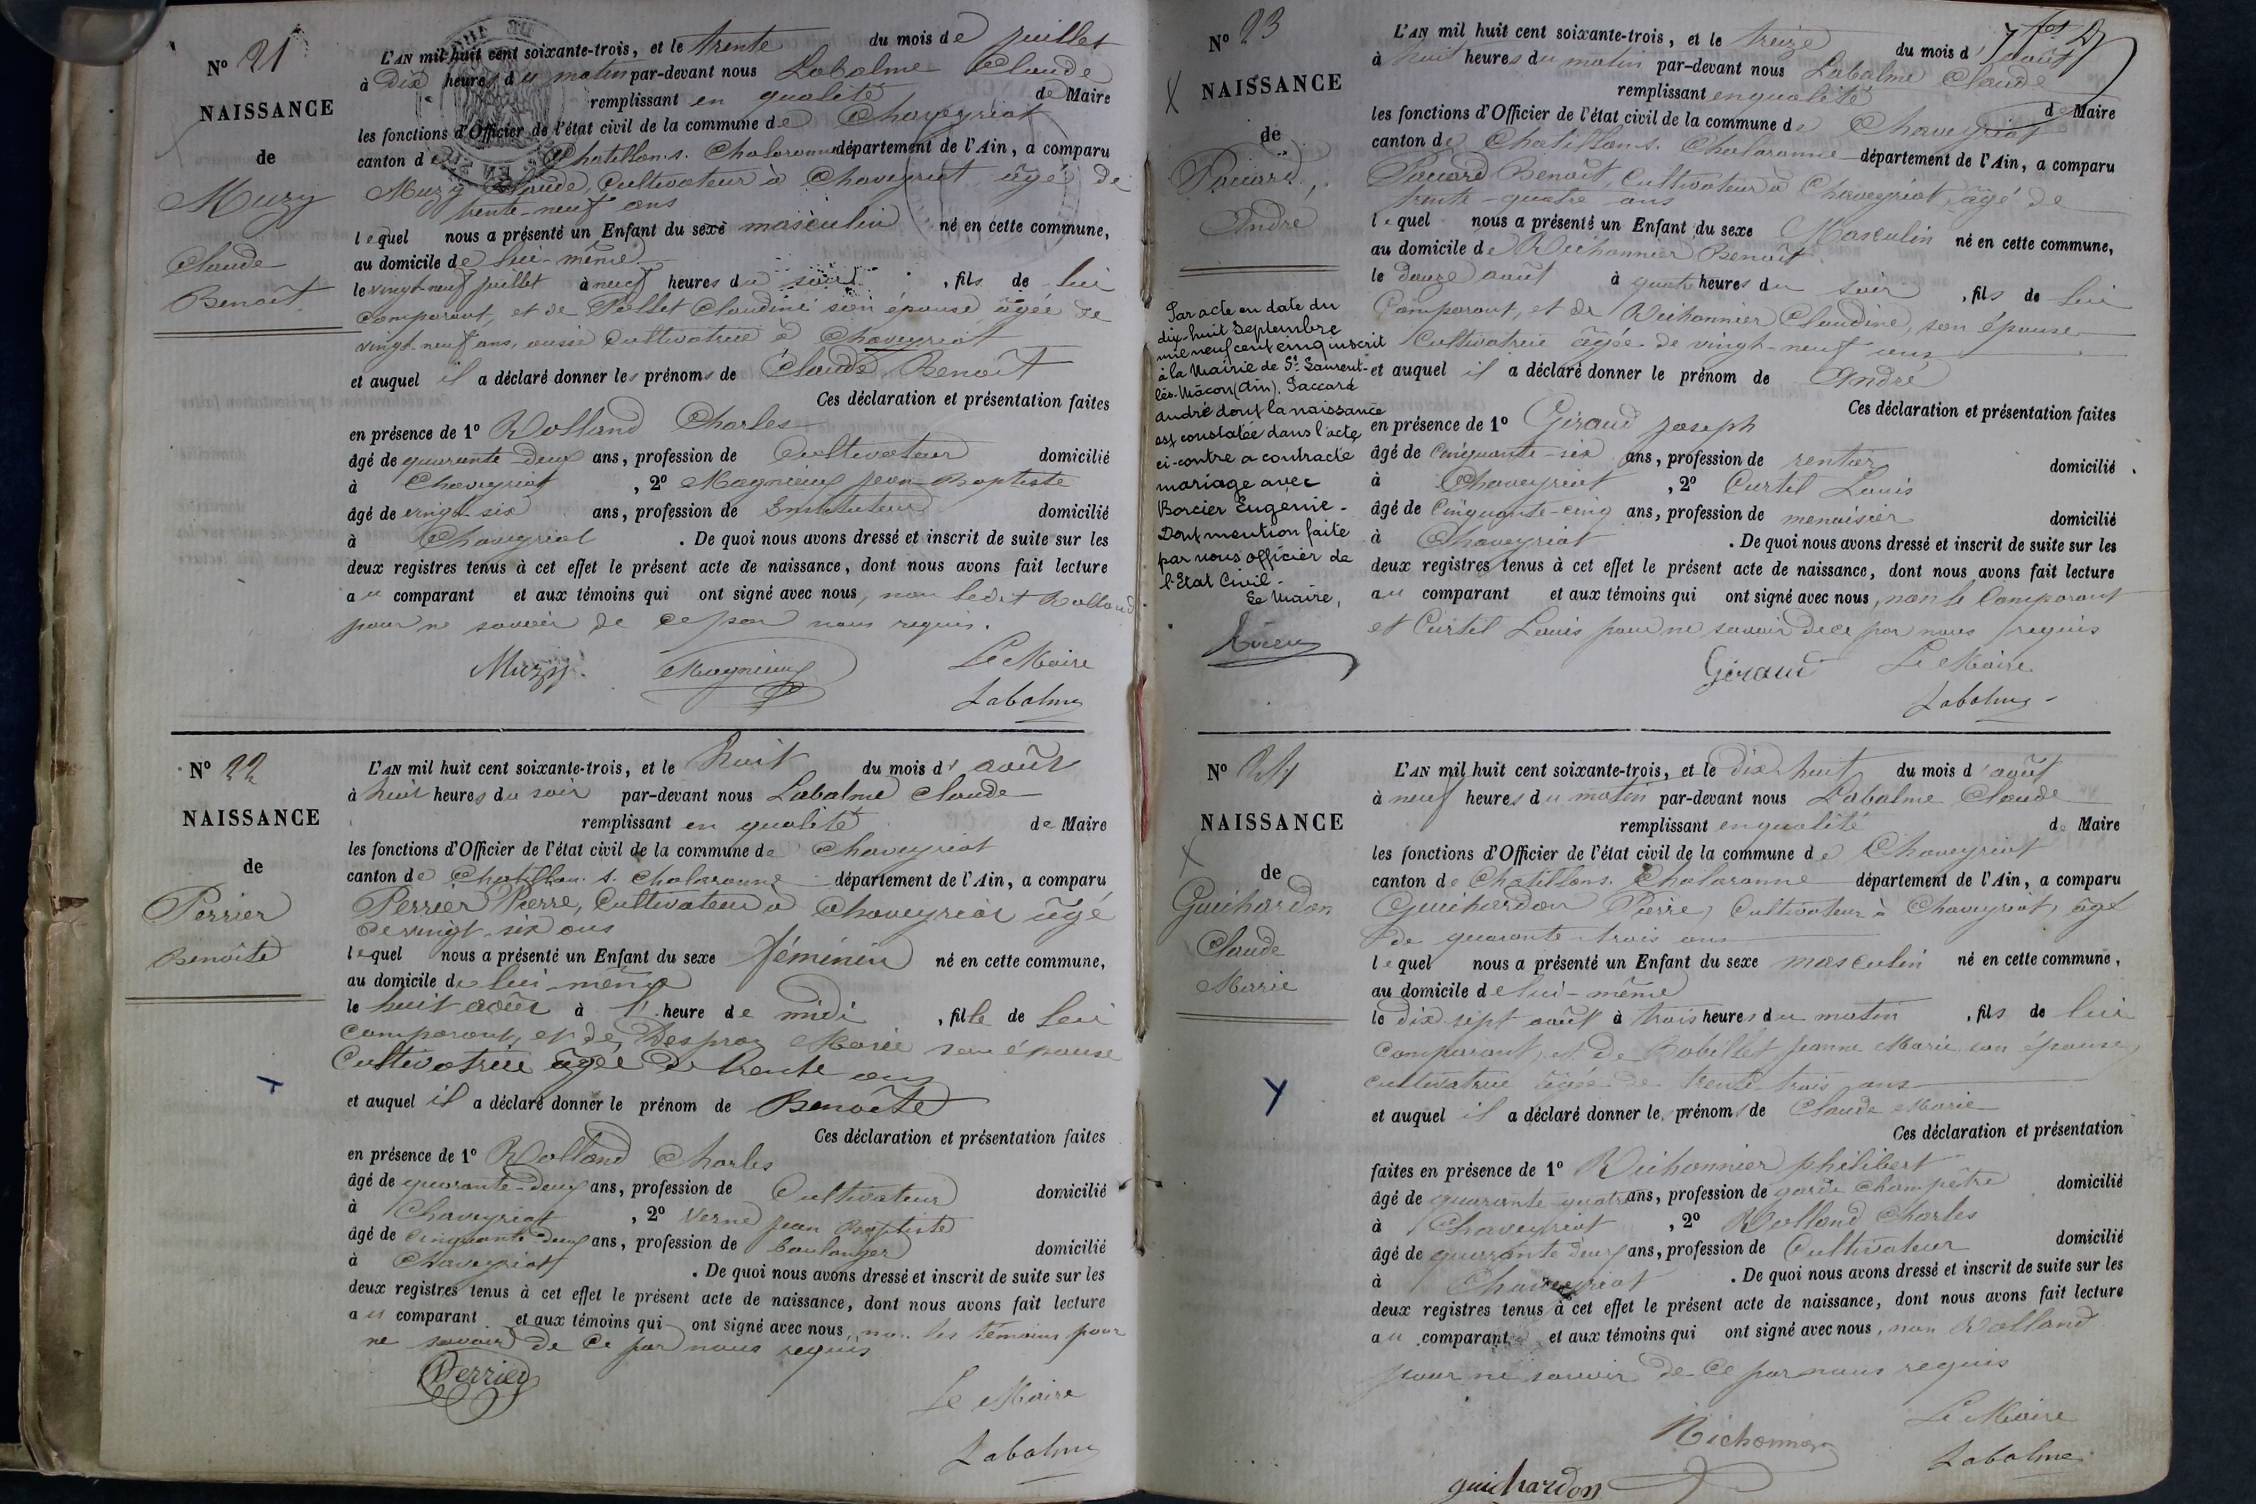 N° 21
NAISSANCE
de
Muzy
Claude
Benoît
L'AN mil huit cent soixante-trois, et le trente du mois de juillet
à dix heures du matin par-devant nous Labalme Claude
remplissant en qualité de Maire
les fonctions d'Officier de l'état civil de la commune de Chaveyriat
canton de Chatillon s. Chalaronne département de l'Ain, a comparu
Muzy Claude, Cultivateur à Chaveyriat âgé de
trente-neuf ans
lequel nous a présenté un Enfant du sexe masculin né en cette commune,
au domicile de lui-même
le vingt-neuf juillet à neuf heures du soir, fils de lui
comparant, et de Pollet Claudine son épouse âgée de
vingt-neuf ans, aussi Cultivatrice à Chaveyriat
et auquel il a déclaré donner les prénoms de Claude Benoît
Ces déclaration et présentation faites
en présence de 1° Rolland Charles
âgé de quarante-deux ans, profession de Cultivateur domicilié
à Chaveyriat, 2° Magnieux Jean-Baptiste
âgé de vingt-six ans, profession de Instituteur domicilié
à Chaveyriat. De quoi nous avons dressé et inscrit de suite sur les
deux registres tenus à cet effet le présent acte de naissance, dont nous avons fait lecture
au comparant et aux témoins qui ont signé avec nous, non ledit Rolland
pour ne savoir de ce par nous requis.
Muzy Magnieux Le Maire
Labalme
N° 22
NAISSANCE
de
Perrier
Benoîte
L'AN mil huit cent soixante-trois, et le huit du mois d'août
à huit heures du soir par-devant nous Labalme Claude
remplissant en qualité de Maire
les fonctions d'Officier de l'état civil de la commune de Chaveyriat
canton de Chatillon s. Chalaronne département de l'Ain, a comparu
Perrier Pierre, Cultivateur à Chaveyriat âgé
de vingt-six ans
lequel nous a présenté un Enfant du sexe féminin né en cette commune,
au domicile de lui-même
le huit août à l' heure de midi, fille de lui
comparant, et de Despraz Marie son épouse
Cultivatrice âgée de trente ans
et auquel il a déclaré donner le prénom de Benoîte
Ces déclaration et présentation faites
en présence de 1° Rolland Charles
âgé de quarante-deux ans, profession de Cultivateur domicilié
à Chaveyriat, 2° Verne Jean Baptiste
âgé de cinquante deux ans, profession de boulanger domicilié
à Chaveyriat. De quoi nous avons dressé et inscrit de suite sur les
deux registres tenus à cet effet le présent acte de naissance, dont nous avons fait lecture
au comparant et aux témoins qui ont signé avec nous, non les témoins pour
ne savoir de ce par nous requis
Perrier
Le Maire
Labalme
N° 23
NAISSANCE
de
Paccard,
André
Par acte en date du
dix-huit Septembre
mil neuf cent cinq inscrit
à la Mairie de St Laurent-
lès-Mâcon (Ain). Paccard
André dont la naissance
est constatée dans l'acte
ci-contre a contracté
mariage avec
Borcier Eugénie.
Dont mention faite
par nous officier de
l'Etat Civil.
Le Maire,
L'AN mil huit cent soixante-trois, et le treize du mois d'août
à huit heures du matin par-devant nous Labalme Claude
remplissant en qualité de Maire
les fonctions d'Officier de l'état civil de la commune de Chaveyriat
canton de Chatillon s. Chalaronne département de l'Ain, a comparu
Paccard Benoît, Cultivateur à Chaveyriat, âgé de
trente-quatre ans
lequel nous a présenté un Enfant du sexe Masculin né en cette commune,
au domicile de Richonnier Benoît
le douze août à quatre heures du soir, fils de lui
Comparant, et de Richonnier Claudine, son épouse
Cultivatrice âgée de vingt-neuf ans
et auquel il a déclaré donner le prénom de André
Ces déclaration et présentation faites
en présence de 1° Giraud Joseph
âgé de Cinquante-six ans, profession de rentier domicilié
à Chaveyriat, 2° Curtil Louis
âgé de Cinquante-cinq ans, profession de menuisier domicilié
à Chaveyriat. De quoi nous avons dressé et inscrit de suite sur les
deux registres tenus à cet effet le présent acte de naissance, dont nous avons fait lecture
au comparant et aux témoins qui ont signé avec nous, non le Comparant
et Curtil Louis pour ne savoir de ce par nous requis
Giraud Le Maire
Labalme
N° 24
NAISSANCE
de
Guichardon
Claude
Marie
L'AN mil huit cent soixante-trois, et le dix-huit du mois d'août
à neuf heures du matin par-devant nous Labalme Claude
remplissant en qualité de Maire
les fonctions d'Officier de l'état civil de la commune de Chaveyriat
canton de Chatillon s. Chalaronne département de l'Ain, a comparu
Guichardon Pierre, Cultivateur à Chaveyriat, âgé
de quarante-trois ans
lequel nous a présenté un Enfant du sexe masculin né en cette commune,
au domicile de lui-même
le dix-sept août à trois heures du matin, fils de lui
comparant, et de Robillet Jeanne Marie son épouse,
cultivatrice âgée de trente trois ans
et auquel il a déclaré donner les prénoms de Claude Marie
Ces déclaration et présentation
faites en présence de 1° Richonnier Philibert
âgé de quarante-quatre ans, profession de garde Champêtre domicilié
à Chaveyriat, 2° Rolland Charles
âgé de quarante deux ans, profession de Cultivateur domicilié
à Chaveyriat. De quoi nous avons dressé et inscrit de suite sur les
deux registres tenus à cet effet le présent acte de naissance, dont nous avons fait lecture
au comparant et aux témoins qui ont signé avec nous, non Rolland
pour ne savoir de ce par nous requis
Richonnier Le Maire
guichardon Labalme